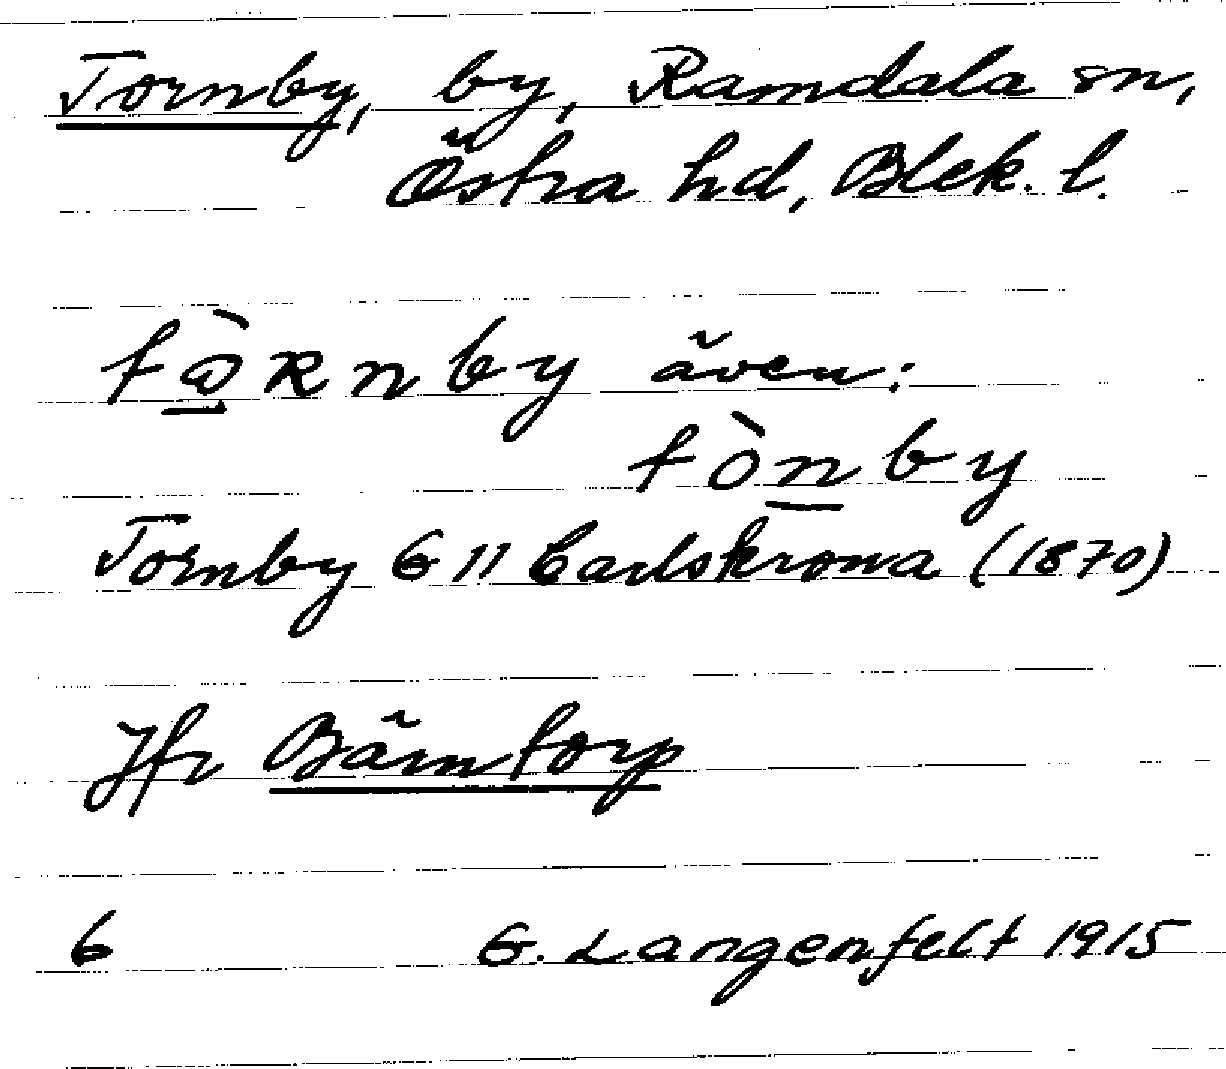 Tornby, by, Ramdala sn,
Östra hd, Blek. l.
tòʀnby även:
tònby
Tornby G 11 Carlskrona (1870)
Jfr Bärntorp
6 G. Langenfelt 1915